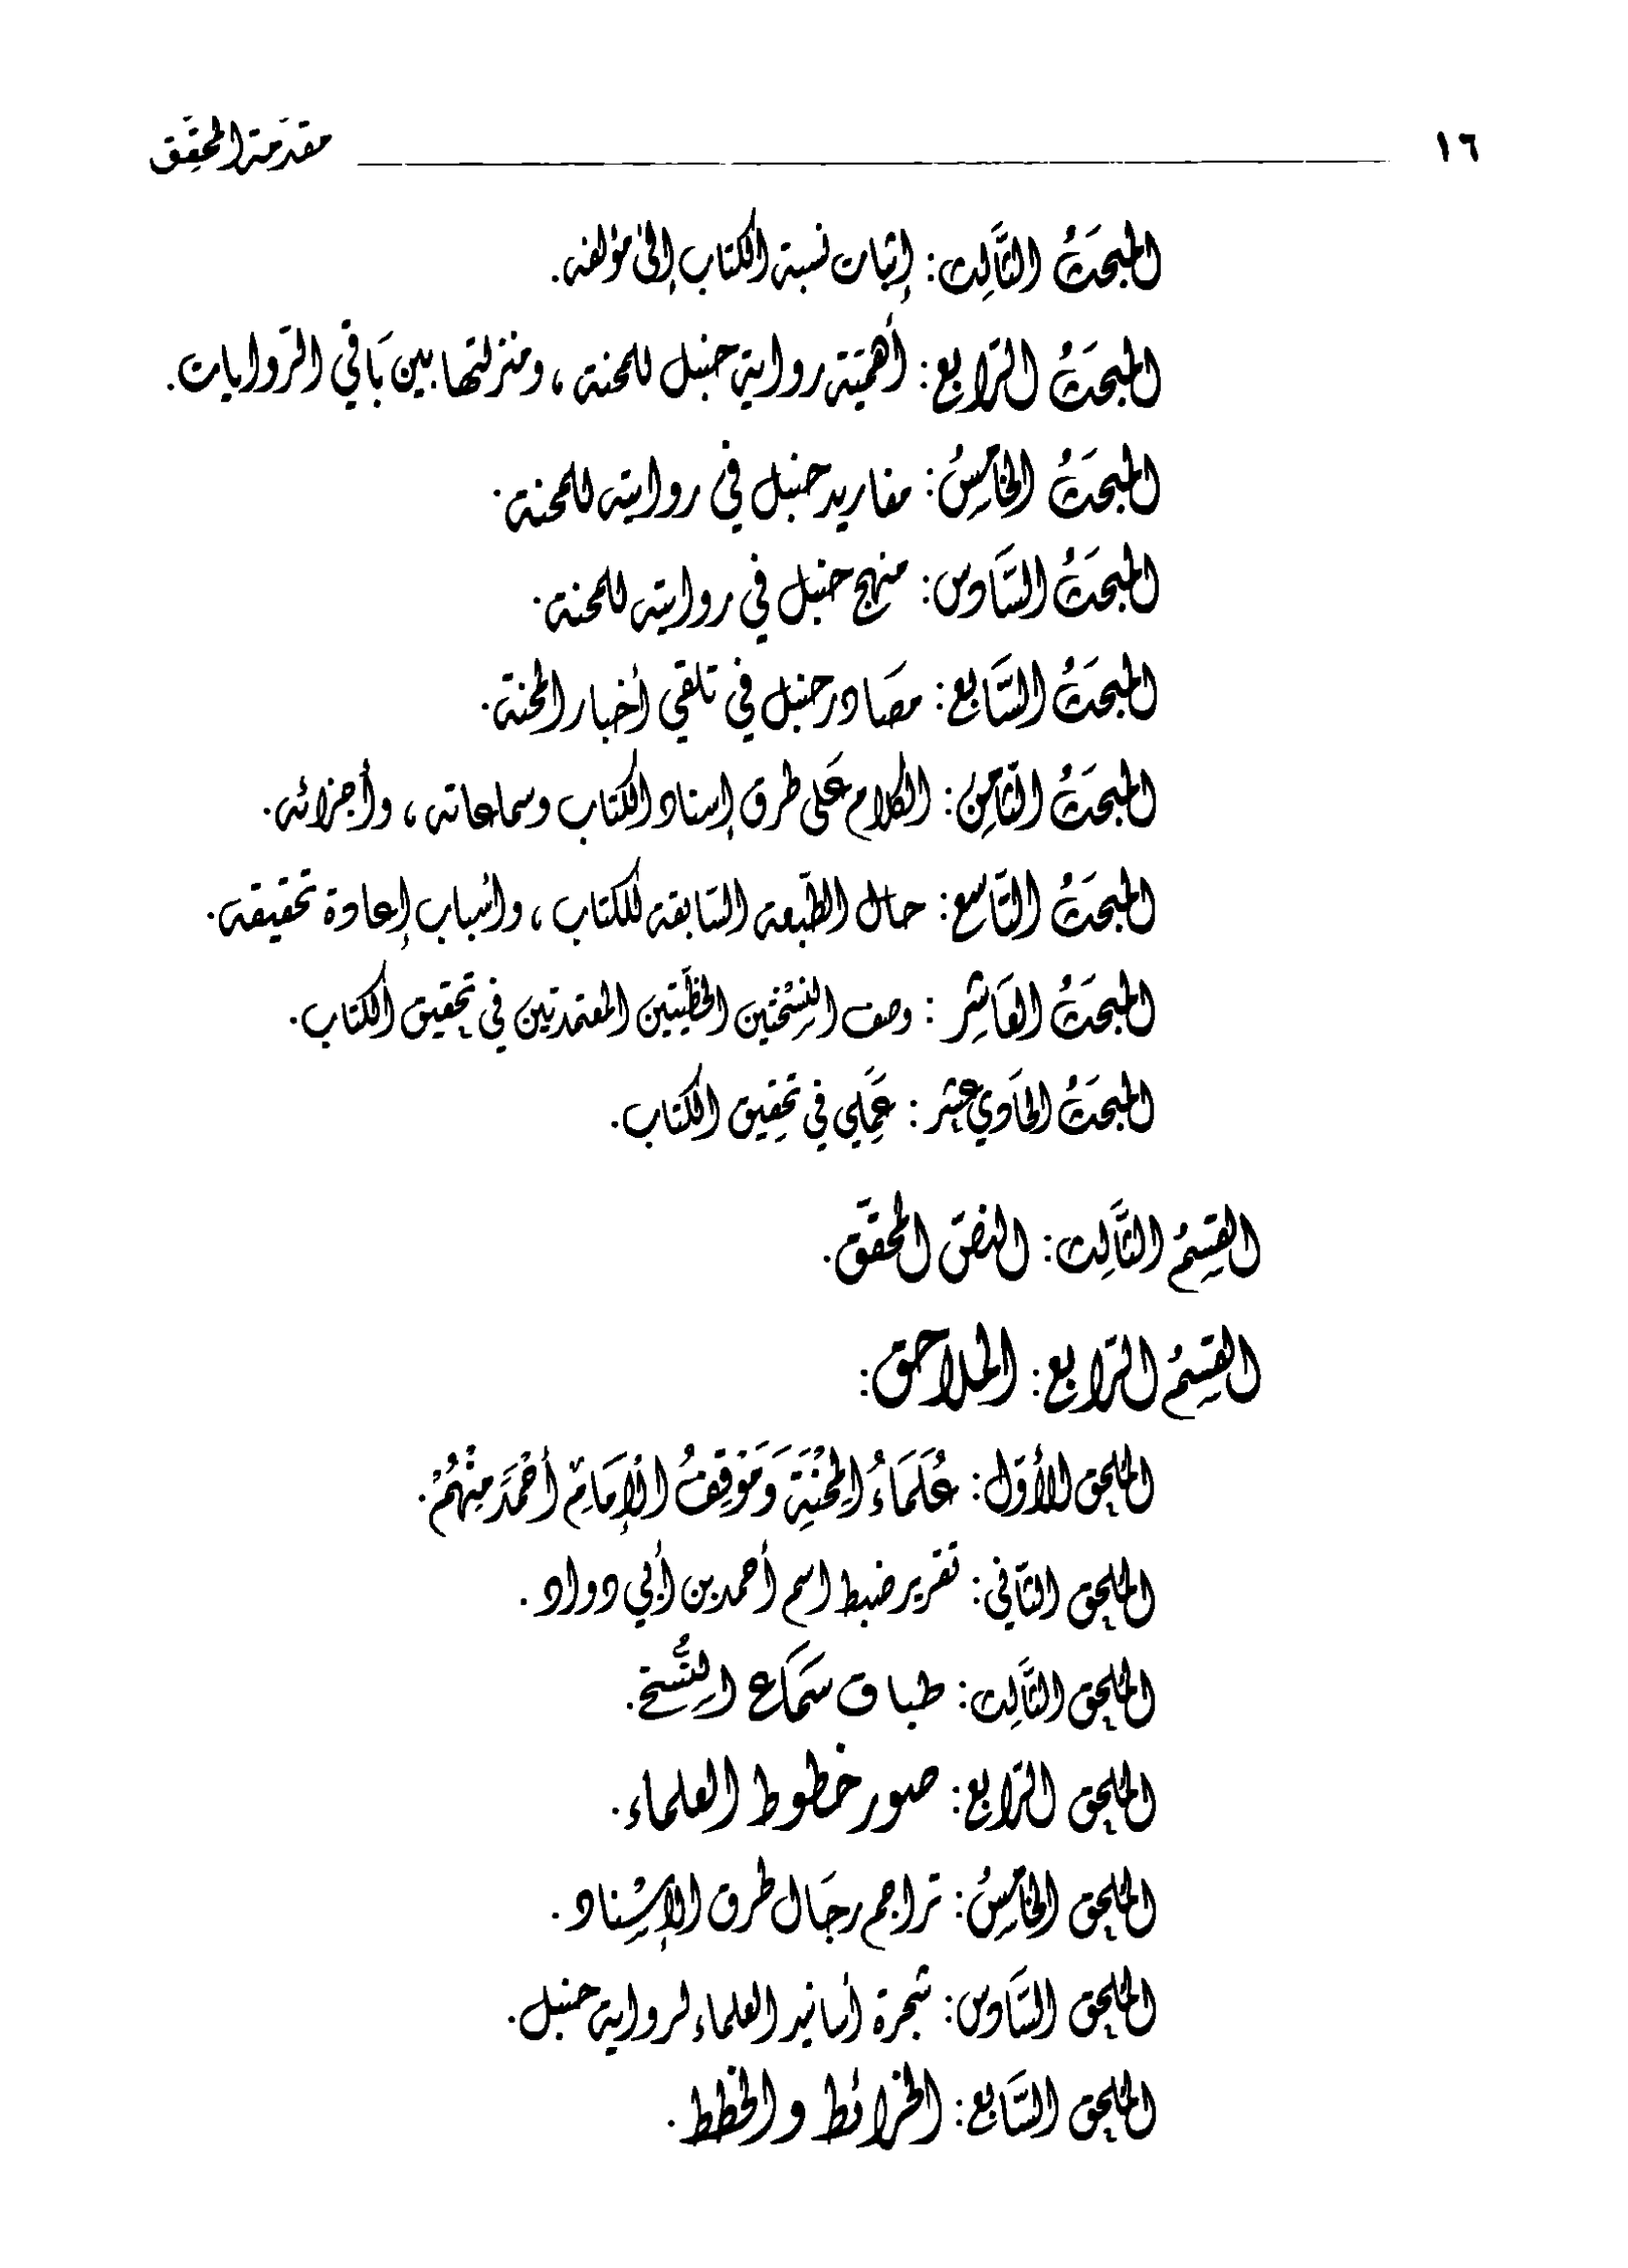 ١٦ مقدمة المحقق
المبحثُ الثَّالِث: إثبات نسبة الكتاب إلى مؤلفه.
المبحثُ الرَّابع: أهميّة رواية حنبل للمحنة، ومنزلتها بين بَاقي الرّوايات.
المبحثُ الخامِسُ: مفاريد حنبل في روايته للمحنة.
المبحثُ السَّادس: منهج حنبل في روايته للمحنة.
المبحثُ السَّابع: مصَادر حنبل في تلقي أخبار المحنة.
المبحثُ الثَّامِن: الكلام عَلى طرق إسناد الكتاب وسماعاته، وأجزائه.
المبحثُ التَّاسع: حال الطّبعة السّابقة للكتاب، وأسباب إعادة تحقيقه.
المبحثُ العَاشِر: وصف النِسْختين الخطّيَتين المعتمدتين في تحقيق الكتاب.
المبحثُ الحَادي عشر: عَمَلي في تحقِيق الكتاب.
القِسِمُ الثَّالِث: النصّ المحقّق.
القِسِمُ الرَّابع: الملاحق:
الملحق الأوّل: عُلَمَاءُ المِحْنَةِ وَمَوْقِفُ الْإِمَامِ أَحْمَدَ مِنْهُمْ.
الملحق الثّاني: تقرير ضبط اسم أحمد بن أبي دواد.
الملحق الثَّالِث: طباق سَمَاع النُّسَخ.
الملحق الرَّابع: صور خطوط العلماء.
الملحق الخامِسُ: تراجم رجَال طرق الإسْناد.
الملحق السَّادس: شجرة أسانيد العلماء لرواية حنبل.
الملحق السَّابع: الخرائط والخطط.